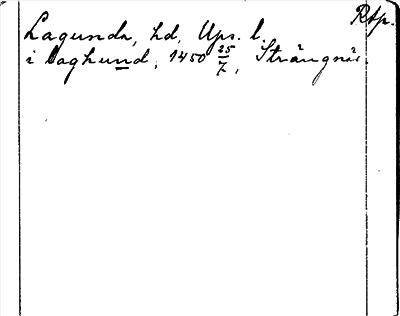 Rap.
Lagunda, hd, Ups. l.
i laghund, 1450 25/7, Strängnäs.